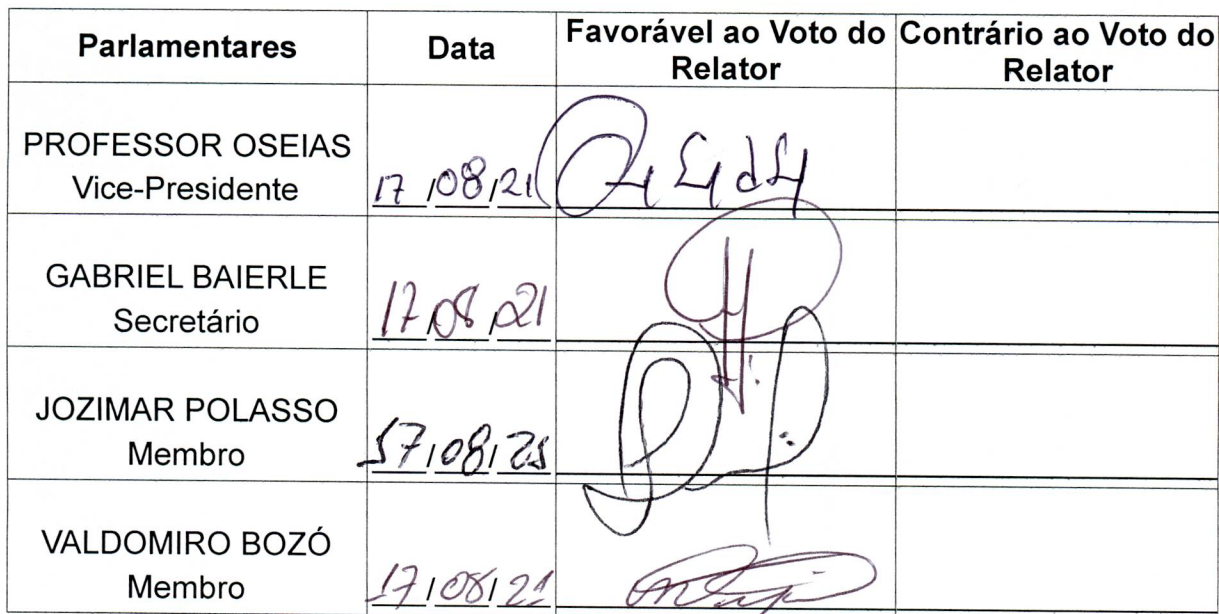 Parlamentares Data Favorável ao Voto do Relator Contrário ao Voto do Relator
PROFESSOR OSEIAS
Vice-Presidente 17/08/21
GABRIEL BAIERLE
Secretário 17/08/21
JOZIMAR POLASSO
Membro 17/08/21
VALDOMIRO BOZÓ
Membro 17/08/21